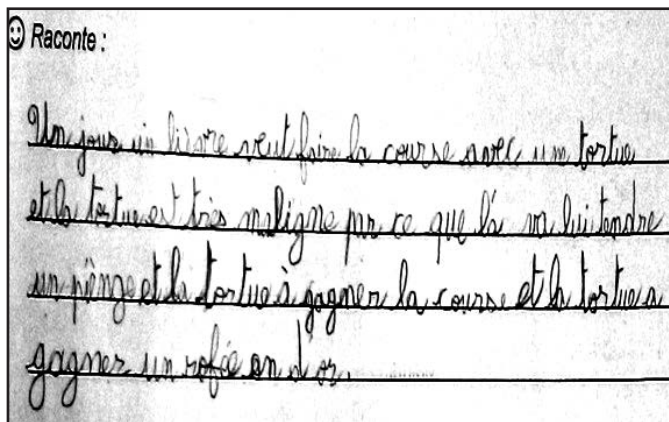 Raconte :
Un jour un lièvre veut faire la course avec un tortue
et la tortue est très maligne par ce que la va lui tendre
un piènge et la tortue à gagner la course et la tortue a
gagner un rofée en d'or.